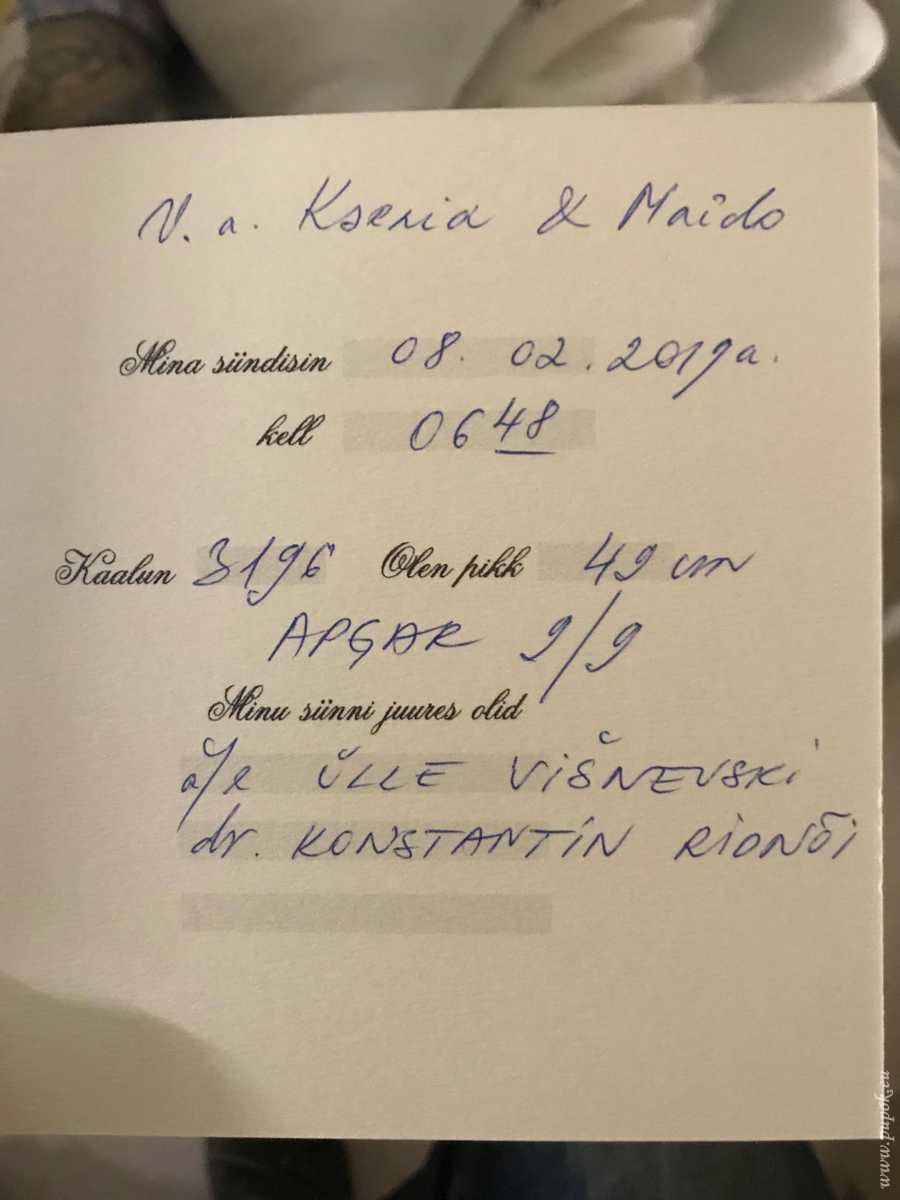 V. a. Ksenia & Maido
Mina sündisin 08. 02. 2019a.
kell 0648
Kaalun 3196 Olen pikk 49 cm
APGAR 9/9
Minu sünni juures olid
ä/e ÜLLE VIŠNEVSKI
dr. KONSTANTIN RIDNÕI
www.pupok.eu